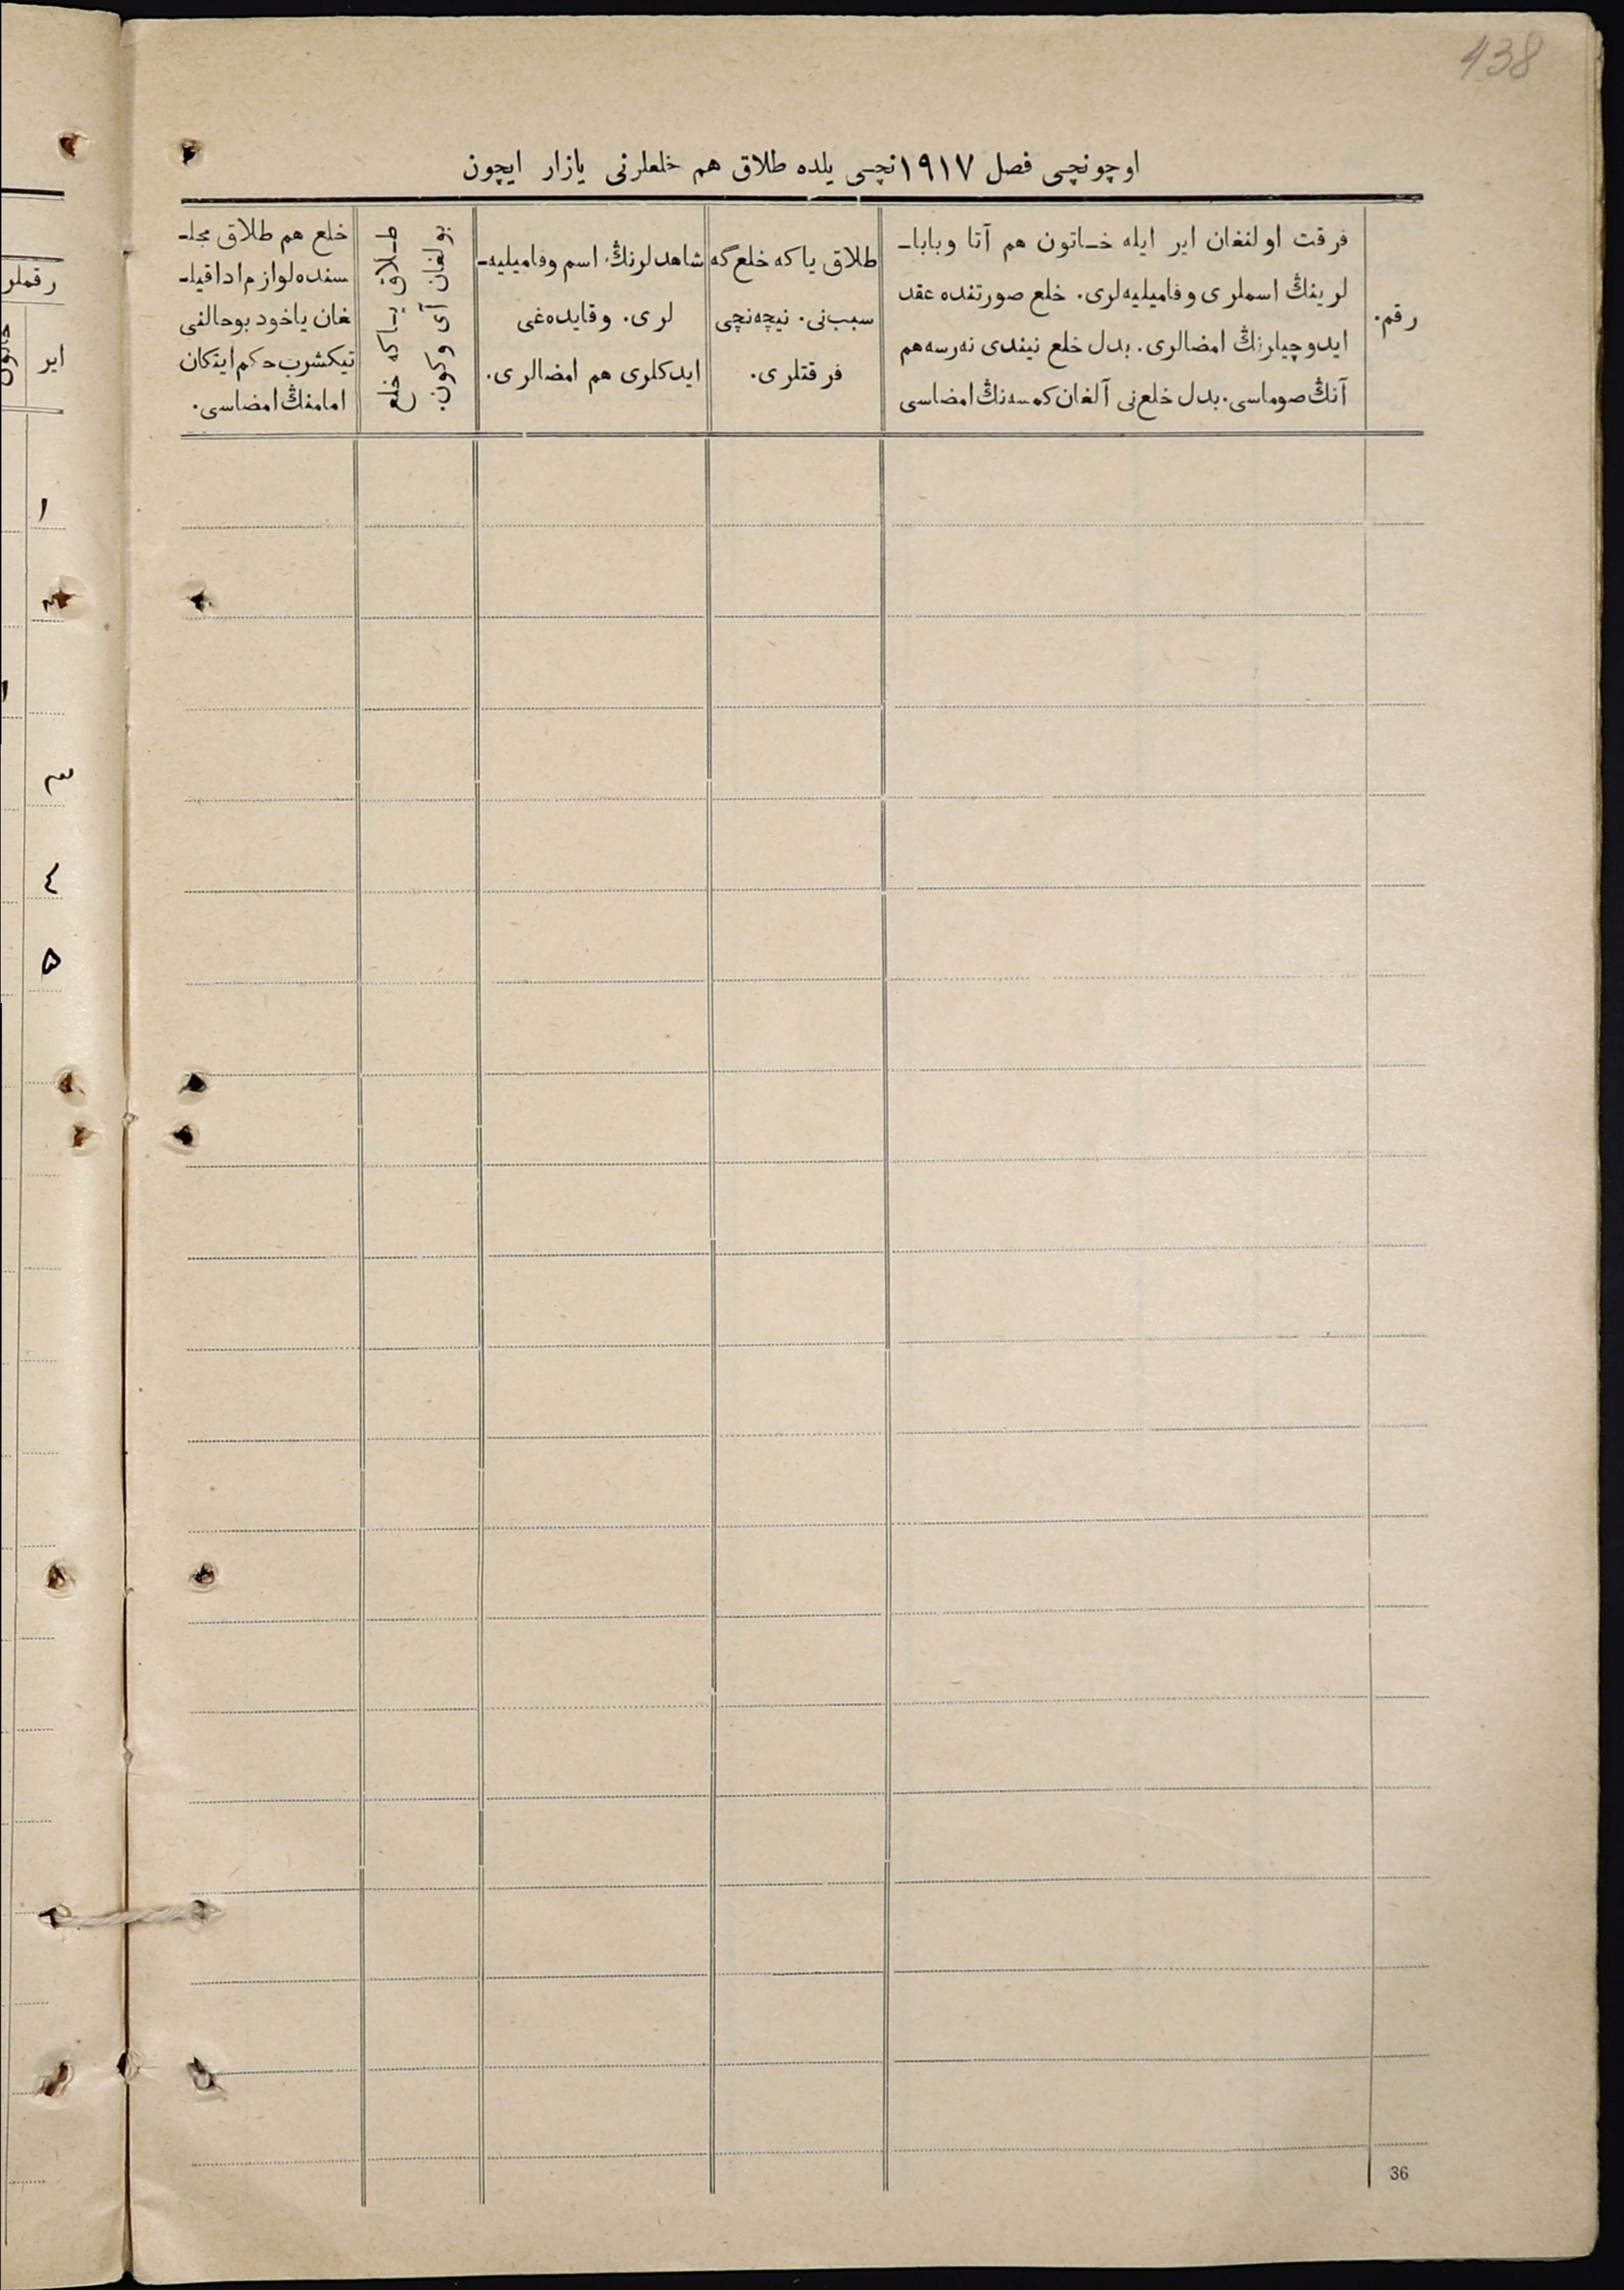 438
اوچونچی فصل ١٩١٧نچی یلده طلاق هم خلعلرنی یازار ایچون
رقم.
فرقت اولنغان ایر ایله خـاتون هم آتا وباباـ
لرینڭ اسملری وفامیلیه‌لری. خلع صورتنده عقد
ایدوچیلرنڭ امضالری. بدل خلع نیندی نه‌رسه‌هم
آنڭ صوماسی. بدل خلع‌نی آلغان کمسه‌نڭ امضاسی
طلاق یاکه خلع‌گه
سبب‌نی. نیچه‌نچی
فرقتلری.
شاهدلرنڭ اسم وفامیلیه‌ـ
لری. وقایده‌غی
ایدکلری هم امضالری.
طـلاق یـاکه خلع
بولغان آی وکون.
خلع هم طلاق مجلـ
سنده‌لوازم اداقیلـ
غان یاخود بوحالنی
تیکشرب حکم ایتکان
امامنڭ امضاسی.
رقملر
ایر
خاتون
١
٣
٤
۵
36